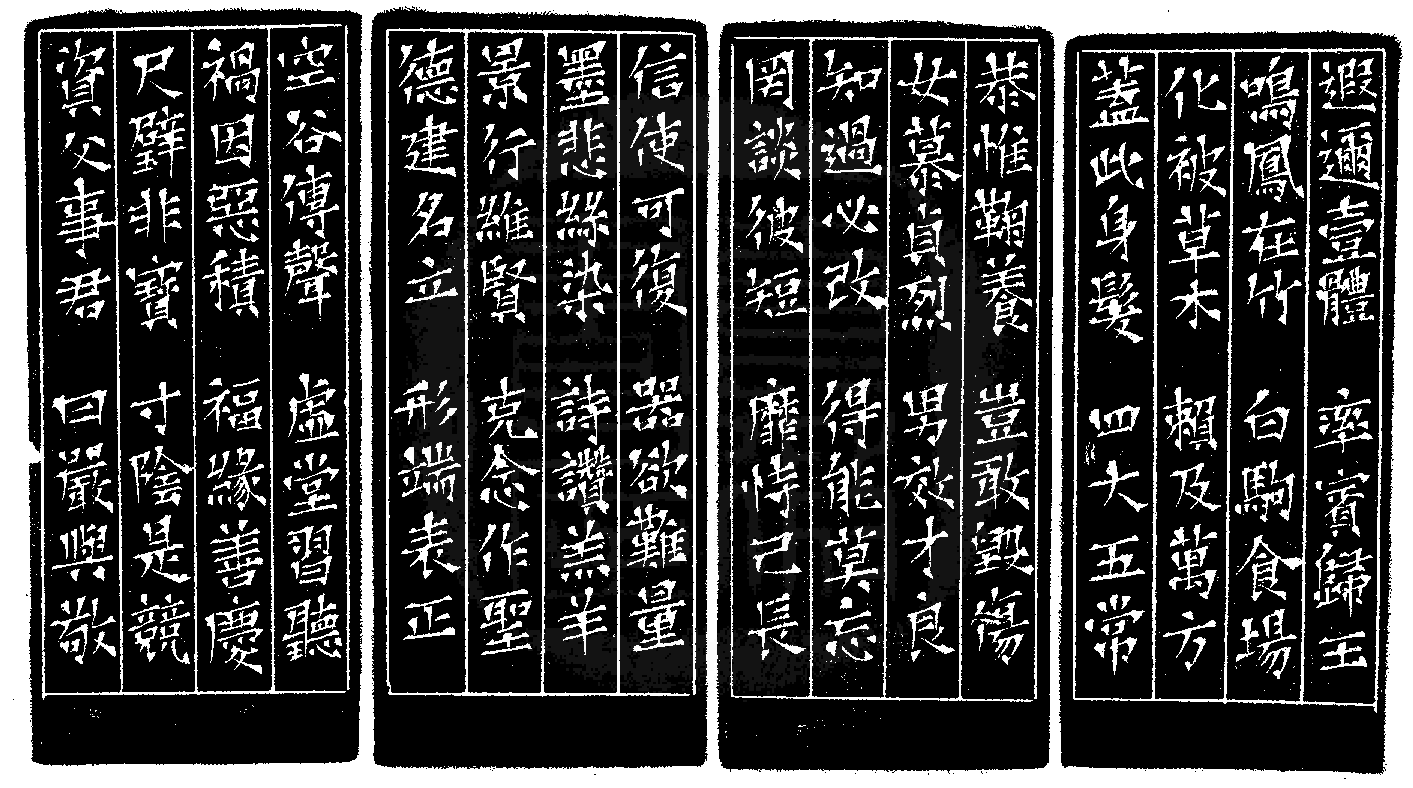 遐邇壹體 率賓歸王
鳴鳳在竹 白駒食場
化被草木 賴及萬方
蓋此身髮 四大五常
恭惟鞠養 豈敢毀傷
女慕貞烈 男效才良
知過必改 得能莫忘
罔談彼短 靡恃己長
信使可復 器欲難量
墨悲絲染 詩讚羔羊
景行維賢 克念作聖
德建名立 形端表正
空谷傳聲 虛堂習聽
禍因惡積 福緣善慶
尺璧非寶 寸陰是競
資父事君 曰嚴與敬